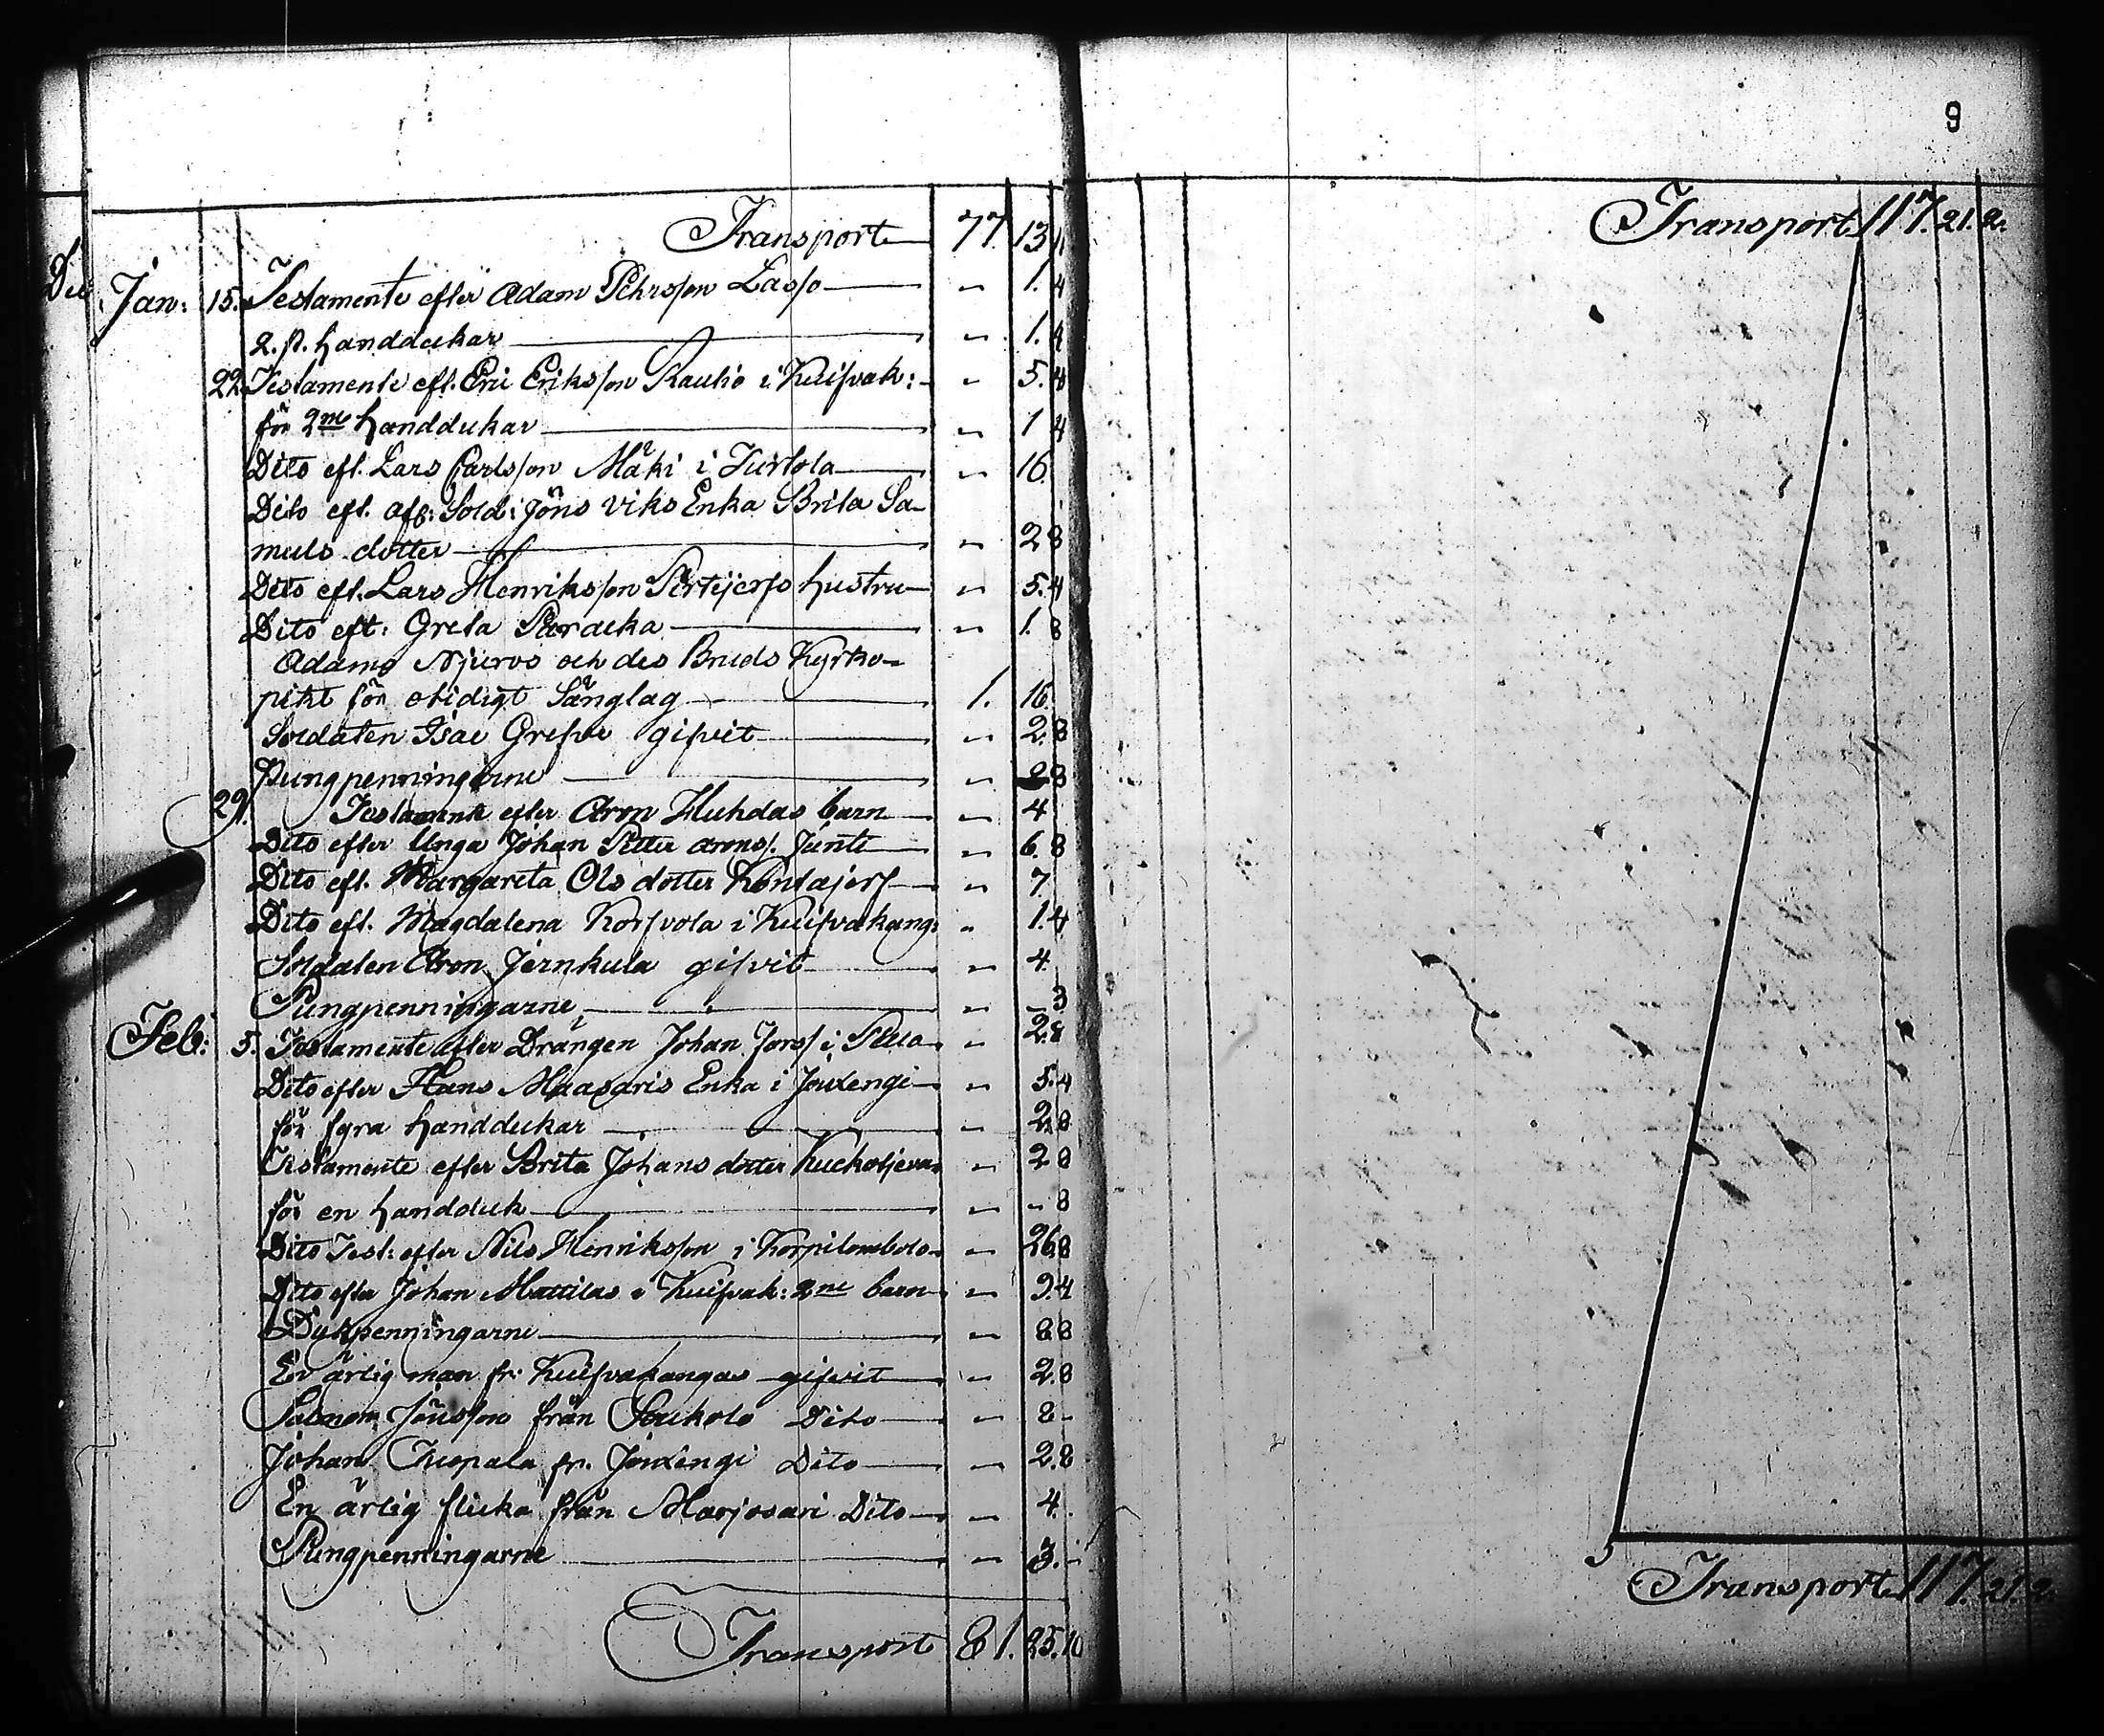 Transport 77. 13
Jan: 15. Testamente efter Adam Pehrsson Lasso " 1. 4
2. st. handdukar " 1. 4
22. Testamente eft. Eric Eriksson Rautio i Kuifvak: " 5. 4
för 2ne handdukar " 1 4
Dito eft. Lars Carlsson Mäki i Turtola " 16.
Dito eft. afs: Sold: Jöns Viks Enka Brita Sa-
muls dotter " 2 8
Dito eft. Lars Henriksson Pertejerfs hustru " 5. 4
Dito eft: Greta " 1. 8
Adams Njurvs och des Bruds Kyrko-
plikt för otidigt Sänglag 1. 16.
Soldaten Isac Grefve gifvit " 2. 8
Pungpenningarne " 2 8
29. Testamente efter Aron Huhdas barn " 4
Dito efter Unga Johan Petter Arons. Junti " 6. 8
Dito eft. Margareta Ols dotter Kontajerf " 7
Dito eft. Magdalena Korfvola i Kuifvakang: " 1. 4
Soldaten Aron Jernkula gifvit " 4.
Pungpenningarne " 3
Feb: 5. Testamente efter Drängen Johan Jorss i " 2. 8
Dito efter Hans Maasaris Enka i Jouxengi " 5. 4
för fyra handdukar " 2. 8
Testamente efter Brita Johans dotter " 2 8
för en handduk " - 8
Dito Test: efter Nils Henriksson i Korpilombolo " 26. 8
Dito efter Johan Mattilas i Kuifvak: 2ne barn " 9 4
Dykpenningarne " 8 8
En ärlig man fr: Kuifvakangas gifvit " 2. 8
Salmon Jönsson från Soukolo Dito " 8 -
Johan Kuopala fr. Jouxengi Dito " 2. 8
En ärlig flicka från Marjosari Dito " 4.
Pungpenningarne " 3. -
Transport 81. 25. 10
9
Transport 117. 21. 2.
Transport 117. 21. 2.